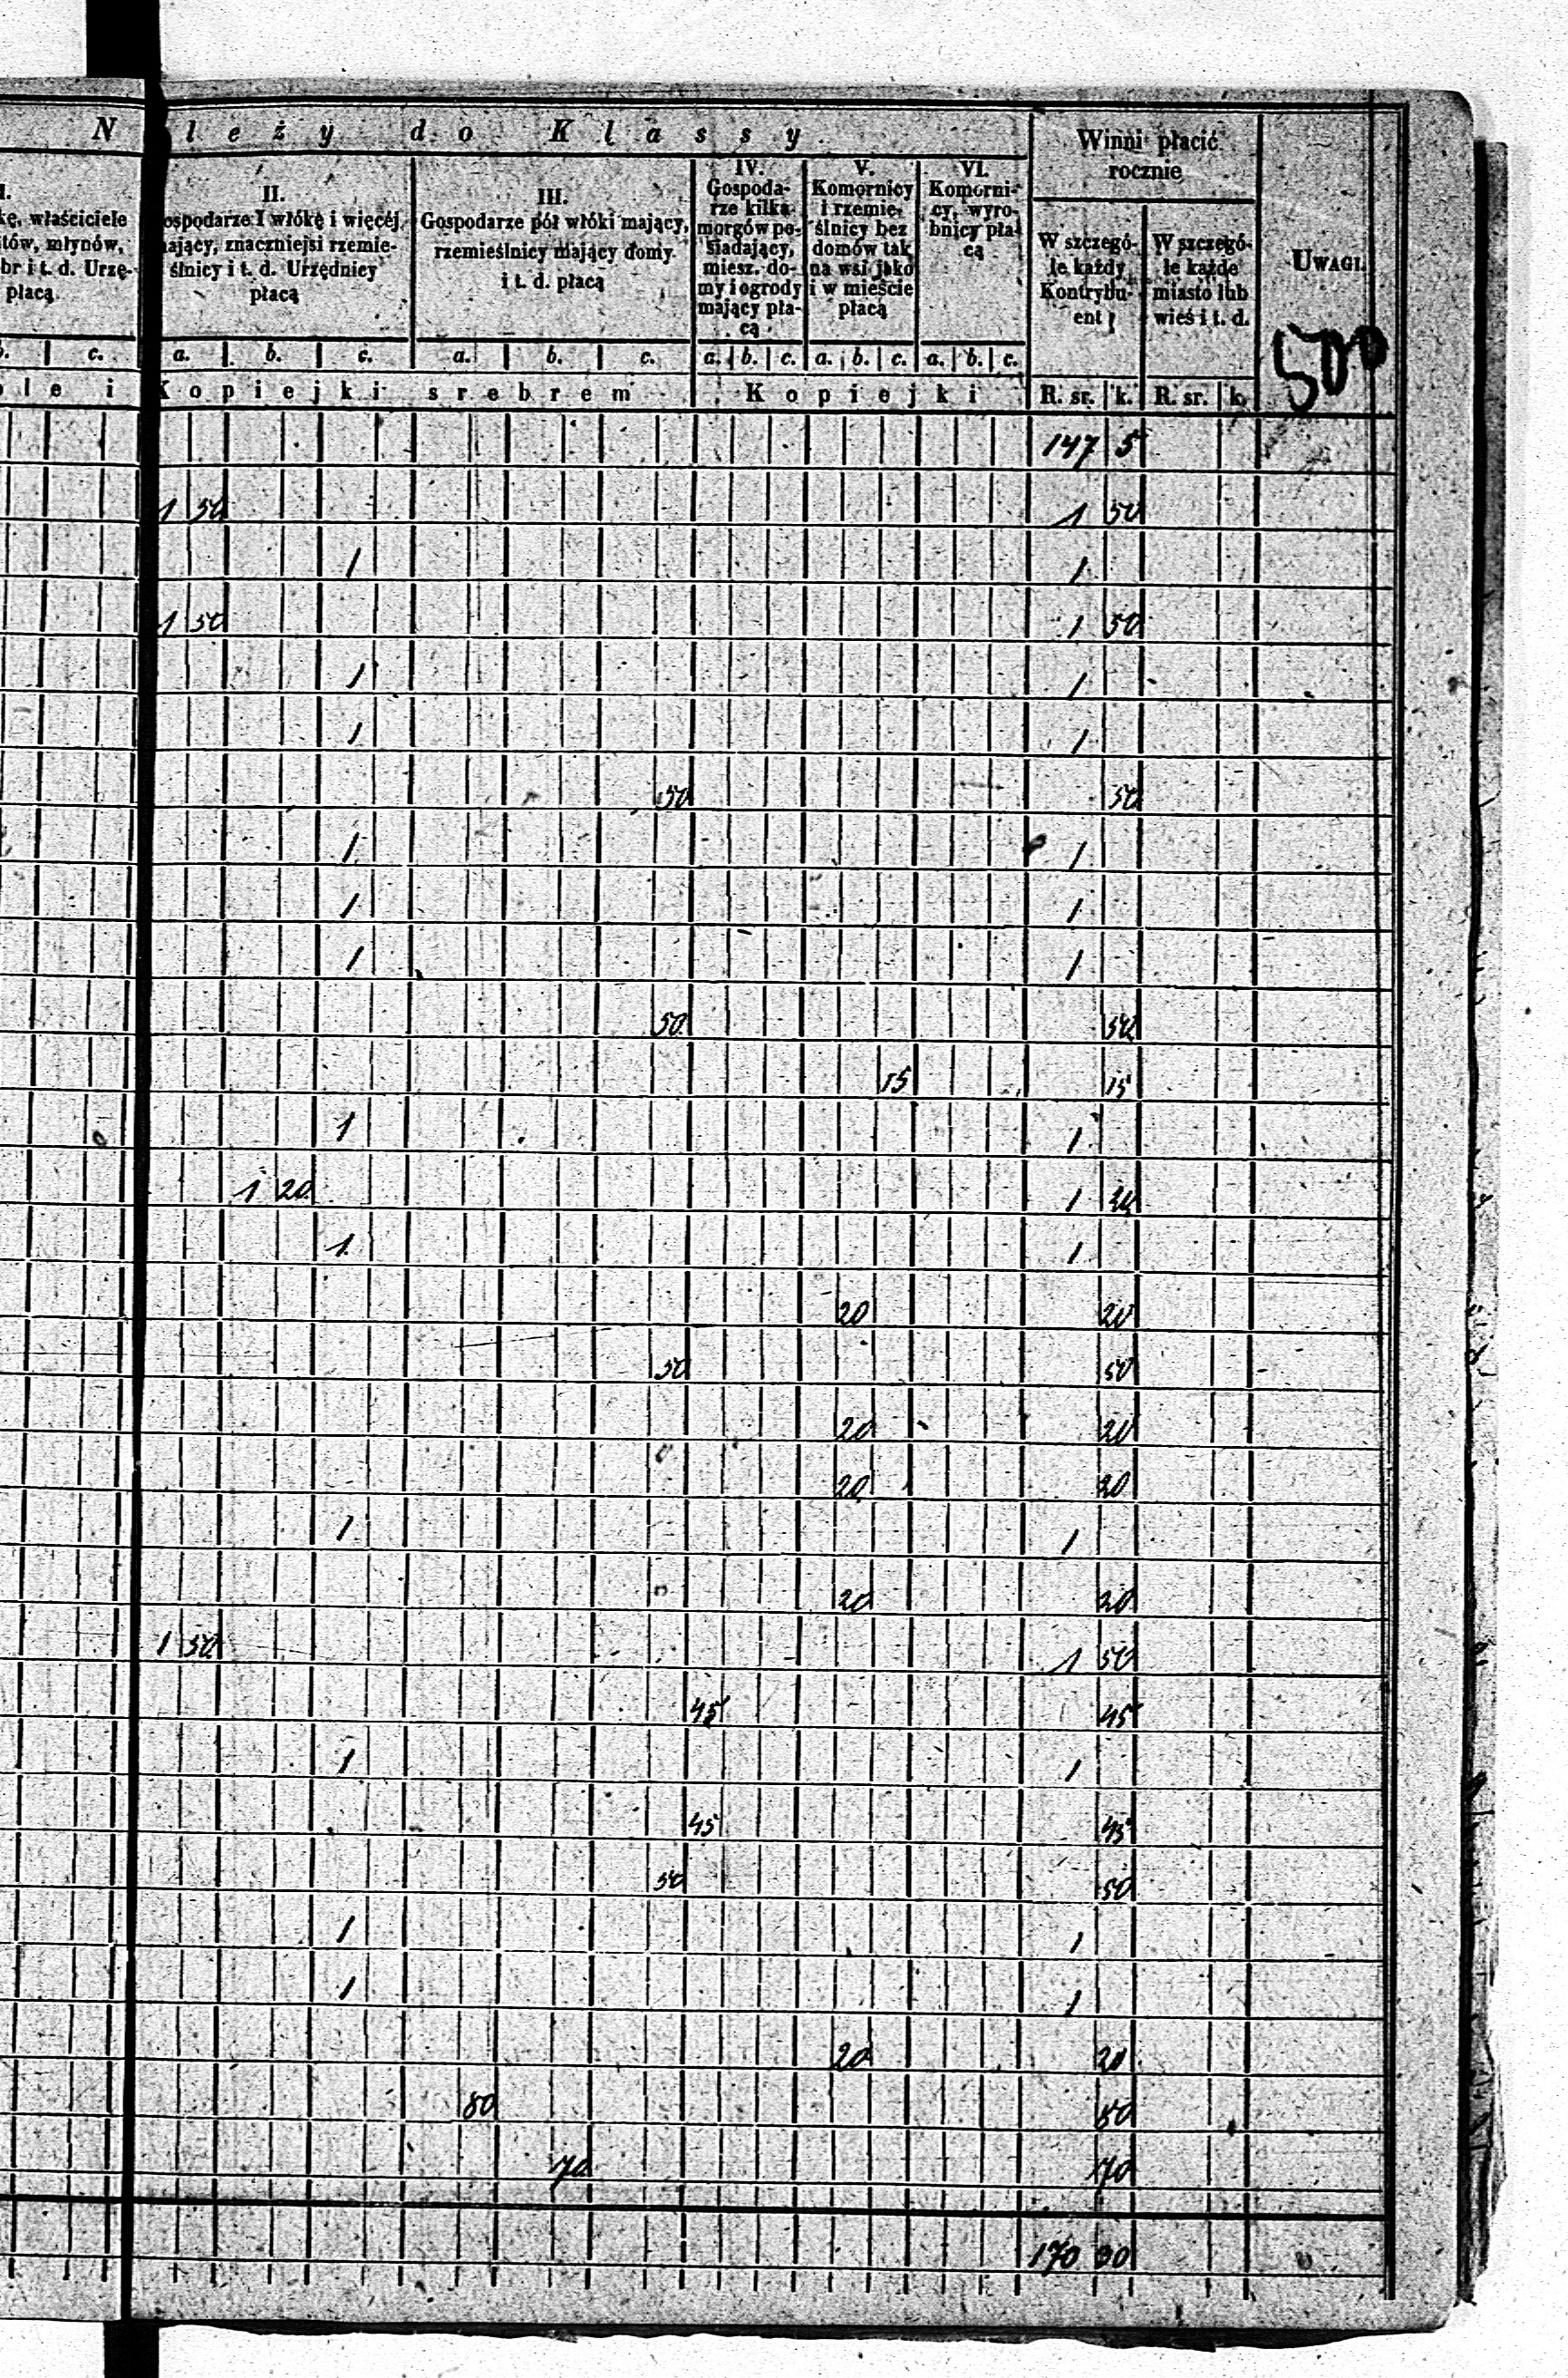 N leży do Klassy
Winni płacić rocznie
I.
kę, właściciele
tów, młynów,
br i t. d. Urzę-
płacą
II.
ospodarze 1 włókę i więcej
ający, znaczniejsi rzemie-
ślnicy i t. d. Urzędnicy
płacą
III.
Gospodarze pół włóki mający,
rzemieślnicy mający domy
i t. d. płacą
IV.
Gospoda-
rze kilka
morgów po-
siadający,
miesz. do-
my i ogrody
mający pła-
cą
V.
Komornicy
i rzemie-
ślnicy bez
domów tak
na wsi jako
i w mieście
płacą
VI.
Komorni-
cy, wyro-
bnicy pła-
cą
W szczegó-
le każdy
Kontrybu-
ent
W szczegó-
le każde
miasto lub
wieś i t. d.
UWAGI.
500
b. c. a. b. c. a. b. c. a. b. c. a. b. c. a. b. c.
ole i Kopiejki srebrem Kopiejki R. sr. k. R. sr. k.
147 5
1 50 1 50
1 1
1 50 1 50
1 1
1 1
50 50
1 1
1 1
1 1
50 50
15 15
1 1
1 20 1 20
1 1
20 20
50 50
20 20
20 20
1 1
20 20
1 50 1 50
45 45
1 1
45 45
50 50
1 1
1 1
20 20
80 80
70 70
170 90